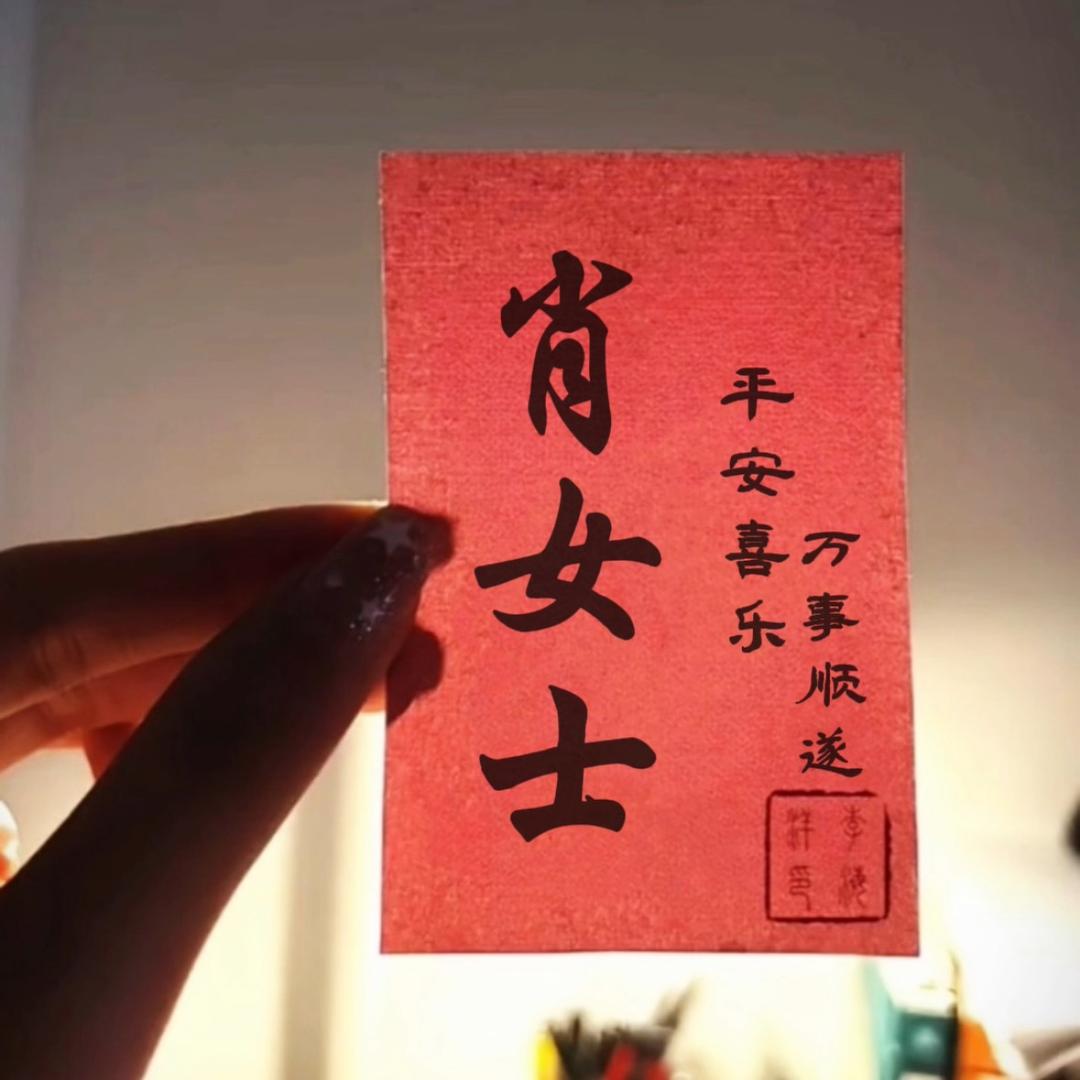 肖女士
平安喜乐
万事顺遂